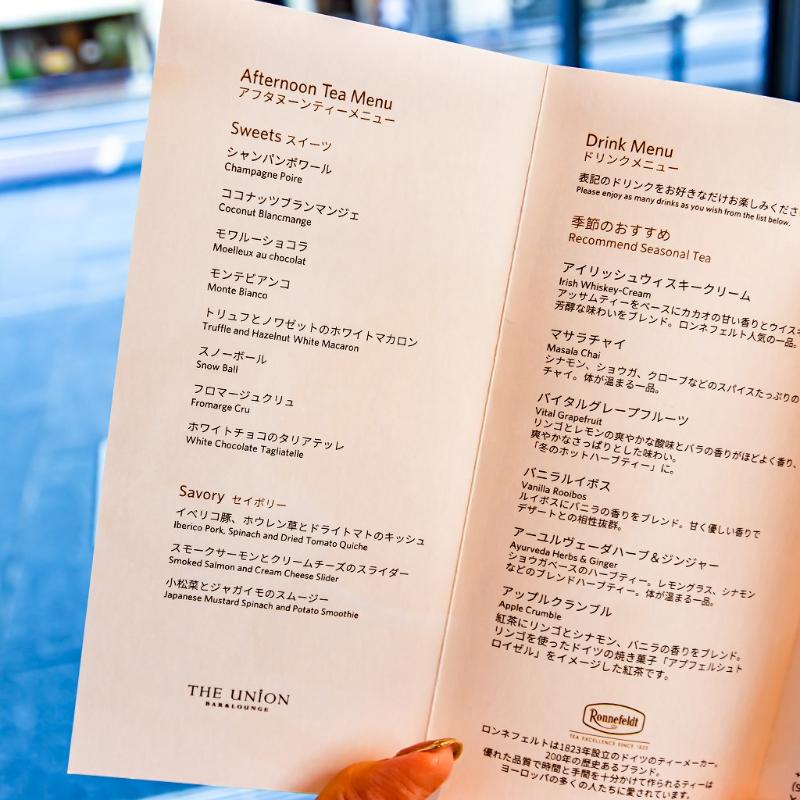 Afternoon Tea Menu
アフタヌーンティーメニュー
Sweets スイーツ
シャンパンポワール
Champagne Poire
ココナッツブランマンジェ
Coconut Blancmange
モワルーショコラ
Moelleux au chocolat
モンテビアンコ
Monte Bianco
トリュフとノワゼットのホワイトマカロン
Truffle and Hazelnut White Macaron
スノーボール
Snow Ball
フロマージュクリュ
Fromarge Cru
ホワイトチョコのタリアテッレ
White Chocolate Tagliatelle
Savory セイボリー
イベリコ豚、ホウレン草とドライトマトのキッシュ
Iberico Pork, Spinach and Dried Tomato Quiche
スモークサーモンとクリームチーズのスライダー
Smoked Salmon and Cream Cheese Slider
小松菜とジャガイモのスムージー
Japanese Mustard Spinach and Potato Smoothie
THE UNION
BAR&LOUNGE
Drink Menu
ドリンクメニュー
表記のドリンクをお好きなだけお楽しみくださ
Please enjoy as many drinks as you wish from the list below,
季節のおすすめ
Recommend Seasonal Tea
アイリッシュウィスキークリーム
Irish Whiskey-Cream
アッサムティーをベースにカカオの甘い香りとウイス
芳醇な味わいをブレンド。ロンネフェルト人気の一品。
マサラチャイ
Masala Chai
シナモン、ショウガ、クローブなどのスパイスたっぷりの
チャイ。体が温まる一品。
バイタルグレープフルーツ
Vital Grapefruit
リンゴとレモンの爽やかな酸味とバラの香りがほどよく香り、
爽やかなさっぱりとした味わい。
「冬のホットハーブティー」に。
バニラルイボス
Vanilla Rooibos
ルイボスにバニラの香りをブレンド。甘く優しい香りで
デザートとの相性抜群。
アーユルヴェーダハーブ＆ジンジャー
Ayurveda Herbs & Ginger
ショウガベースのハーブティー。レモングラス、シナモン
などのブレンドハーブティー。体が温まる一品。
アップルクランブル
Apple Crumble
紅茶にリンゴとシナモン、バニラの香りをブレンド。
リンゴを使ったドイツの焼き菓子「アプフェルシュト
ロイゼル」をイメージした紅茶です。
Ronnefeldt
TEA EXCELLENCE SINCE 1823
ロンネフェルトは1823年設立のドイツのティーメーカー。
200年の歴史あるブランド。
優れた品質で時間と手間を十分かけて作られるティーは
ヨーロッパの多くの人たちに愛されています。